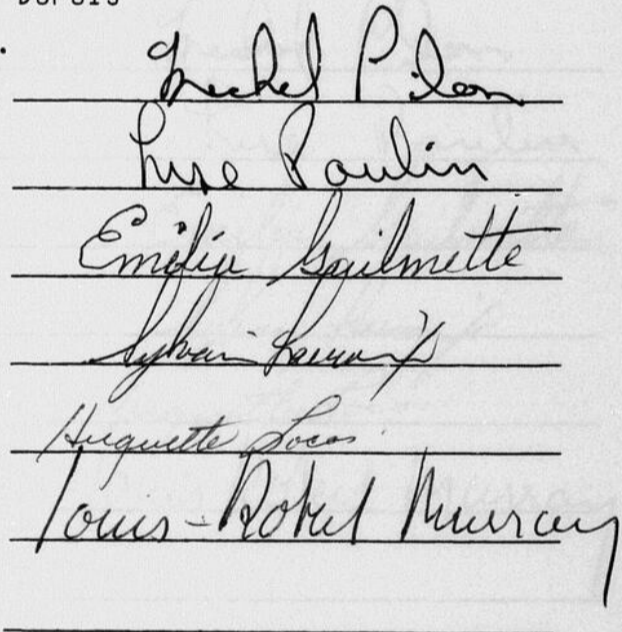 Michel Pilon
Luse Poulin
Emilia Guilmette
Sylvain
Huguette Locas
Louis-Robert Murray